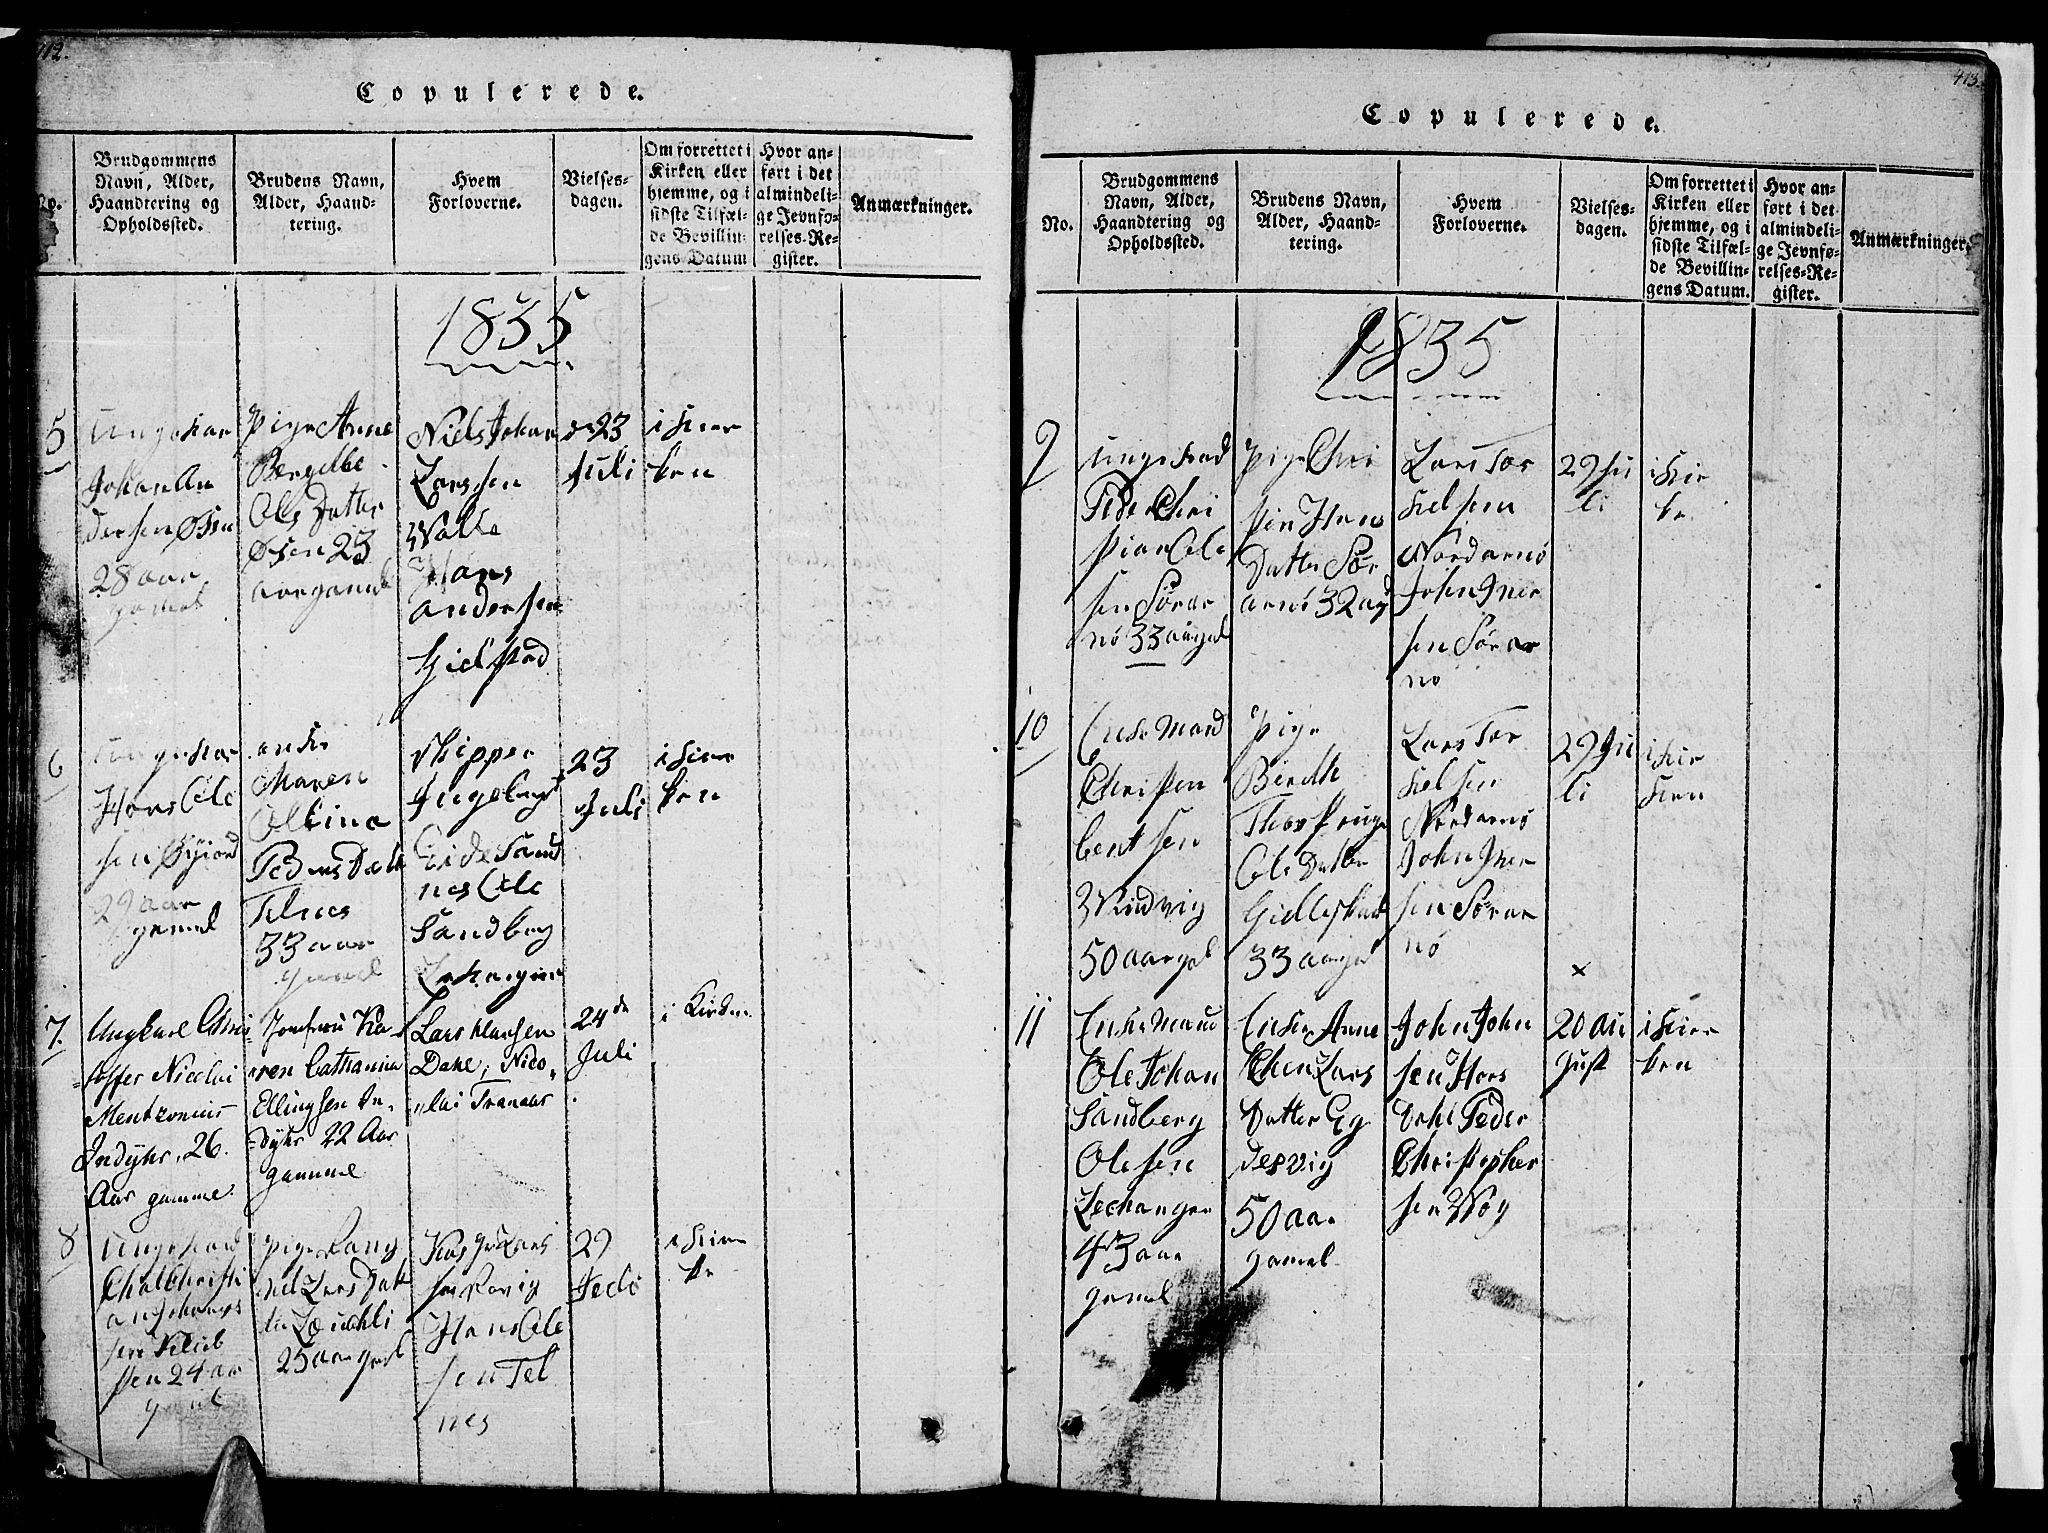 412.
Copulerede.
No.
Brudgommens
Navn, Alder,
Haandtering og
Opholdssted.
Brudens Navn,
Alder, Haand-
tering.
Hvem
Forloverne.
Vielses-
dagen.
Om forrettet i
Kirken eller
hjemme, og i
sidste Tilfæl-
de Bevillin-
gens Datum
Hvor an-
ført i det
almindeli-
ge Jevnfø-
relses-Re-
gister.
Anmærkninger.
1835
5
Ungekar
Johan An
dersen Øsen
28 aar
gamel
Pige Anne
Bergitte
Ols Datter
Øsen 23
aar gamel
Niels Johan
Larssen
Valle
Hans
Andersen
Gielstad
d 23
Juli
i Kier
ken
6
Ungekar
Hans Ole
sen
29 aar
gamel
enke
Maren
Oltina
Peders Datt
Telnes
33 aar
gamel
Skipper
Ingebregt
Eide Sand
nes Ole
Sandberg
23
Juli
i Kier
ken
7.
Ungkarl Chri
stoffer Nicolai
Mentzonius
Indyhr, 26.
Aar gamme.
Jomfrue Ka
ren Cathanna
Ellingsen In-
dyhr 22 Aar
gamme
Lars Hansen
Dake, Nico-
lai Tranaas
24de
Juli
i Kirken
8
Ungekard
Christi
an Johans
sen
24 aar
gamel
Pige Rang
nil Lars Dat
ter
25 aar gael
Lars
sen
Hans Ole
sen Tel
nes
29
Jeli
i Kier
ke
413.
Copulerede.
No.
Brudgommens
Navn, Alder,
Haandtering og
Opholdssted.
Brudens Navn,
Alder, Haand-
tering.
Hvem
Forloverne.
Vielses-
dagen.
Om forrettet i
Kirken eller
hjemme, og i
sidste Tilfæl-
de Bevillin-
gens Datum.
Hvor an-
ført i det
almindeli-
ge Jevnfø-
relses-Re-
gister.
Anmærkninger.
1835
9
Ungekard
Peder Chri
stian Ole
sen Sørar
nø 33 aar gal
Pige Chri
stin Hans
Datter Sør
arnø 32 ag
Lars Tor
kelsen
Nordarnø
John Iver
sen Sørar
nø
29 Ju
li
i Kir
ke
10
Enke Mand
Christen
Bentsen
Vindvig
50 aar gal
Pige
Birdth
Ole Datter
Gilleskaal
33 aar gal
Lars Tor
kelsen
Nordarnø
John Iver
sen Sørar
nø
29 Ju
li
i Kir
ken
x
11
Enke Mand
Ole Johan
Sandberg
Olesen
Lechangen
43 aar
gamel
Enke Anne
Ehen Lars
Datter Eg
desvig
50 aar
gamel
John John
sen Hors
dahl Peder
Christopher
sen Våg
20 Au
gust
i Kier
ken